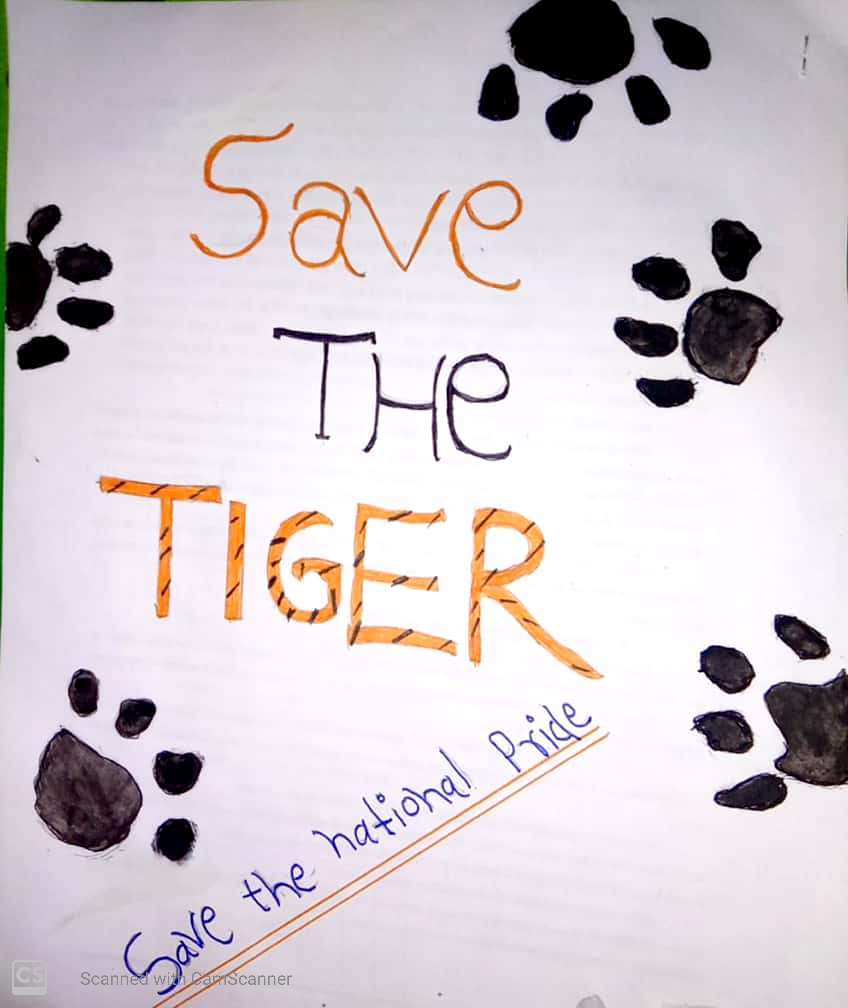 Save
THe
TIGER
Save the national Pride
CS Scanned with CamScanner